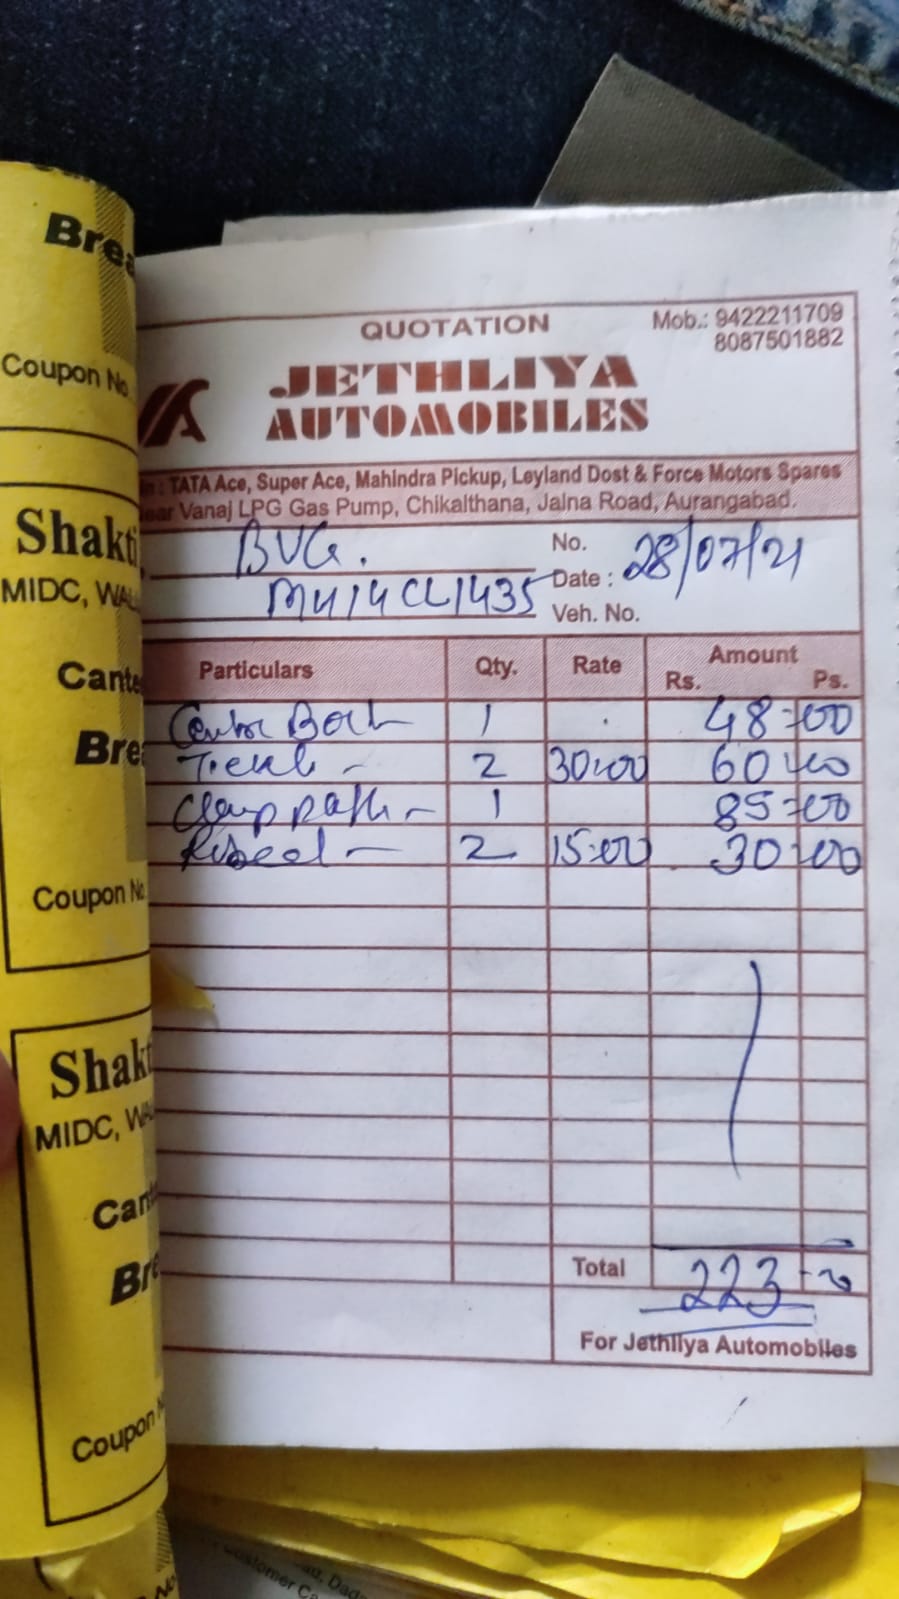 Brea
Coupon No
Shakti
MIDC, WAL
Cante
Brea
Coupon No
Shakti
MIDC, WAL
Cant
Bre
Coupon N
QUOTATION
Mob.: 9422211709
8087501882
JETHLIYA
AUTOMOBILES
in : TATA Ace, Super Ace, Mahindra Pickup, Leyland Dost & Force Motors Spares
ear Vanaj LPG Gas Pump, Chikalthana, Jalna Road, Aurangabad.
BVG.
No.
Date : 28/07/21
MH14CL1435
Veh. No.
Particulars Qty. Rate Amount
Rs. Ps.
1 48=00
2 30=00 60=00
1 85=00
2 15=00 30=00
Total 223-00
For Jethliya Automobiles
ustomer Ca